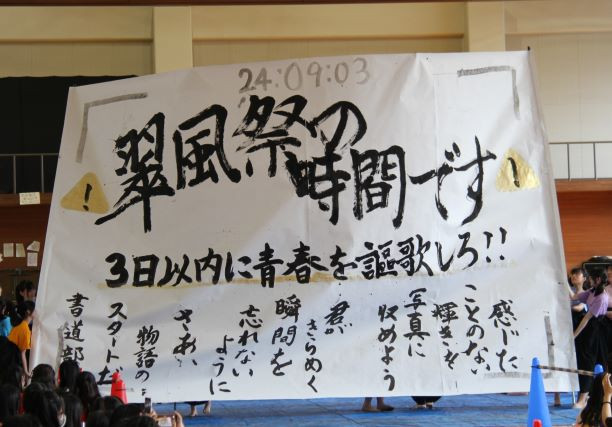 24:09:03
翠風祭の
時間です
!
!
3日以内に青春を謳歌しろ!!
感じた
ことのない
輝きを
写真に
収めよう
君が
きらめく
瞬間を
忘れない
ように
さあ、
物語の
スタートだ
書道部